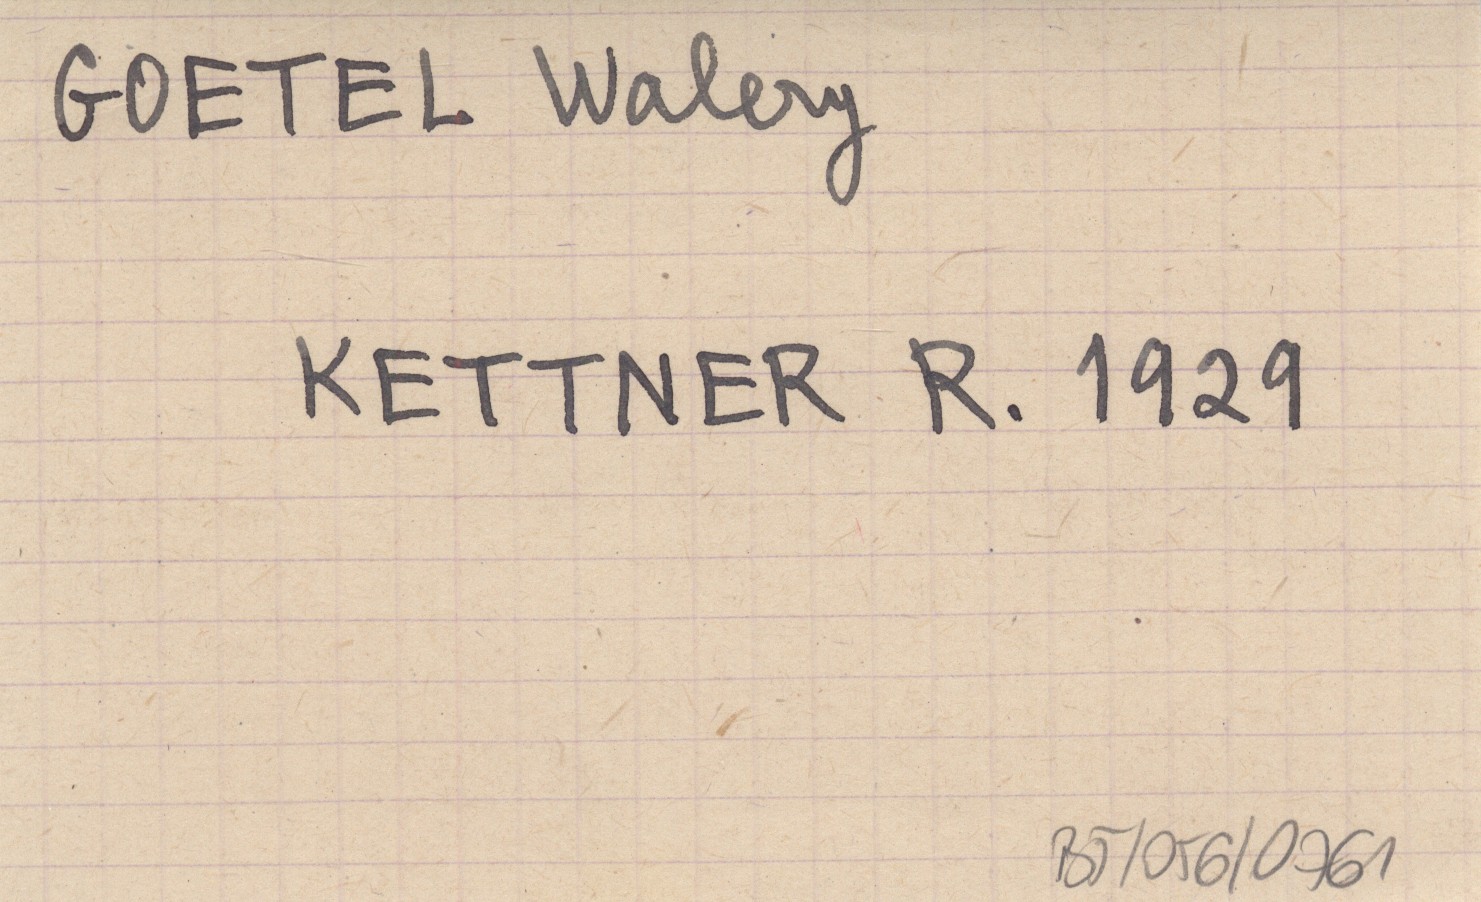 GOETEL Walery
KETTNER R. 1929
BJ/056/0761